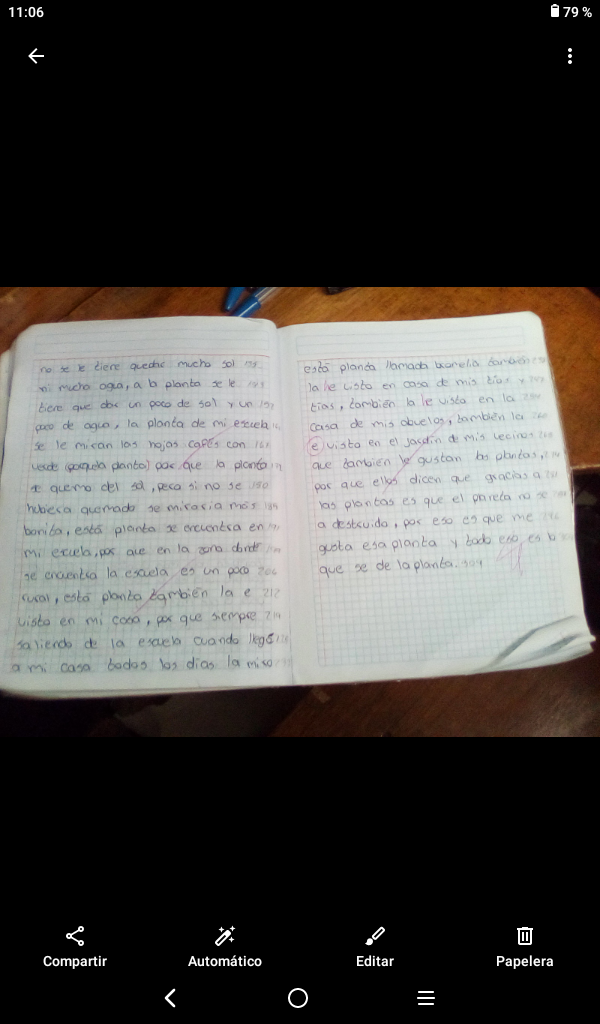 11:06
79 %
no se le tiene quedar mucho sol
ni mucho agua, a la planta se le
tiene que dar un poco de sol y un
poco de agua, la planta de mi escuela
se le miran las hojas cafés con
verde (porquela planta) por que la planta
se quemo del sol, pero si no se 180
hubiera quemado se miraria más
bonita, está planta se encuentra en
mi escuela, por que en la zona donde
se encuentra la escuela es un poco 206
rural, está planta también la e 212
visto en mi casa, por que siempre 219
saliendo de la escuela cuando llegó
a mi casa todos los días la miro
está planta llamada bromelia también
la he visto en casa de mis tíos y
tías, también la he visto en la
casa de mis abuelos, también la
e visto en el jardín de mis vecinos
que también le gustan las plantas,
por que ellos dicen que gracias a
las plantas es que el paneta no se
a destruido, por eso es que me
gusta esa planta y todo eso es lo
que se de la planta. 304
Compartir
Automático
Editar
Papelera